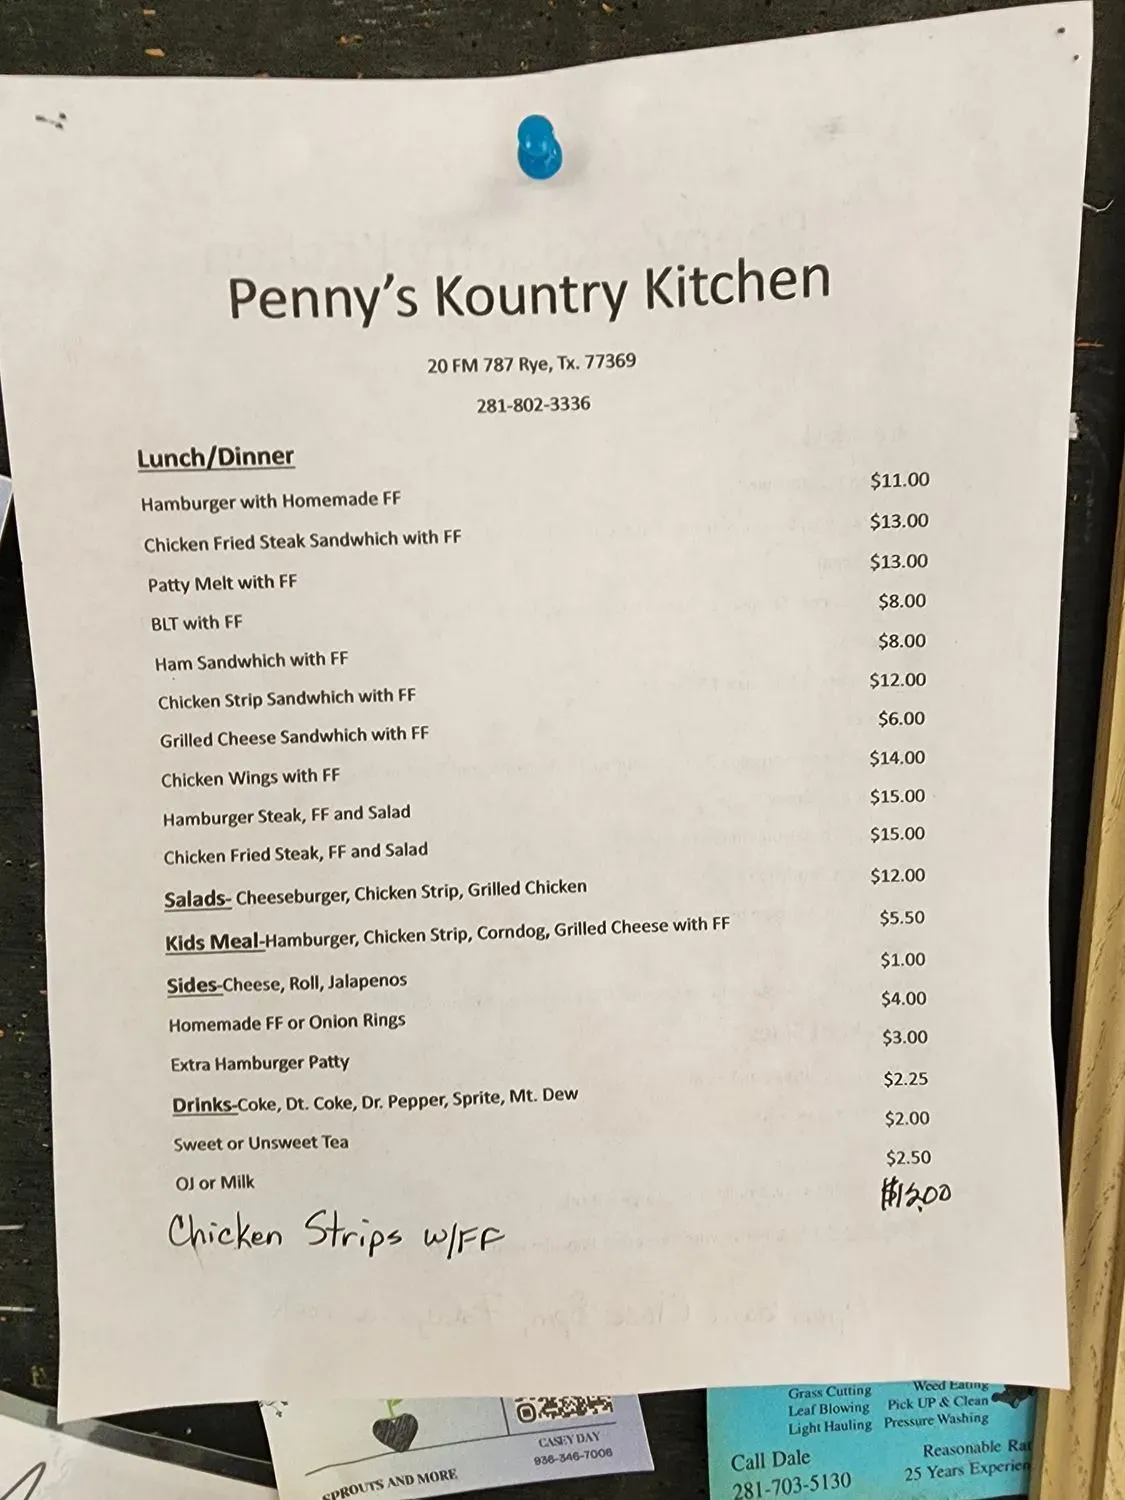 Penny's Kountry Kitchen
20 FM 787 Rye, Tx. 77369
281-802-3336
Lunch/Dinner
Hamburger with Homemade FF $11.00
Chicken Fried Steak Sandwhich with FF $13.00
Patty Melt with FF $13.00
BLT with FF $8.00
Ham Sandwhich with FF $8.00
Chicken Strip Sandwhich with FF $12.00
Grilled Cheese Sandwhich with FF $6.00
Chicken Wings with FF $14.00
Hamburger Steak, FF and Salad $15.00
Chicken Fried Steak, FF and Salad $15.00
Salads- Cheeseburger, Chicken Strip, Grilled Chicken $12.00
Kids Meal-Hamburger, Chicken Strip, Corndog, Grilled Cheese with FF $5.50
Sides-Cheese, Roll, Jalapenos $1.00
Homemade FF or Onion Rings $4.00
Extra Hamburger Patty $3.00
Drinks-Coke, Dt. Coke, Dr. Pepper, Sprite, Mt. Dew $2.25
Sweet or Unsweet Tea $2.00
OJ or Milk $2.50
Chicken Strips w/FF
SPROUTS AND MORE
CASEY DAY
936-346-7006
Grass Cutting Weed Eating
Leaf Blowing Pick UP & Clean
Light Hauling Pressure Washing
Call Dale Reasonable
281-703-5130 25 Years